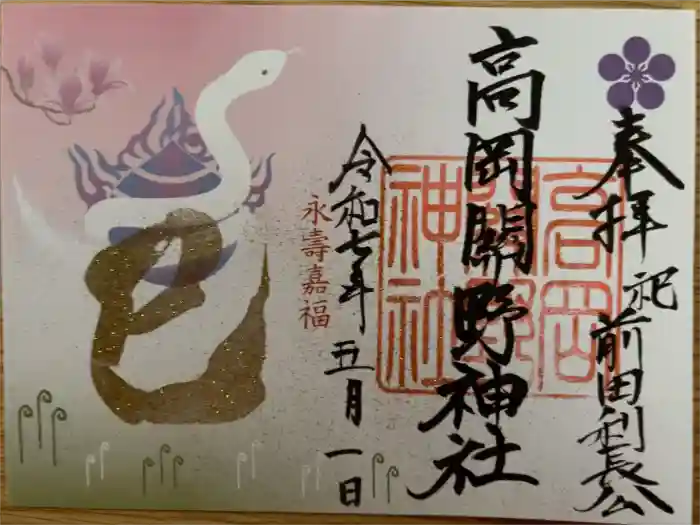 奉拝
祀前田利長公
高岡關野神社
高岡
關野
神社
令和七年
五月一日
永壽嘉福
巳